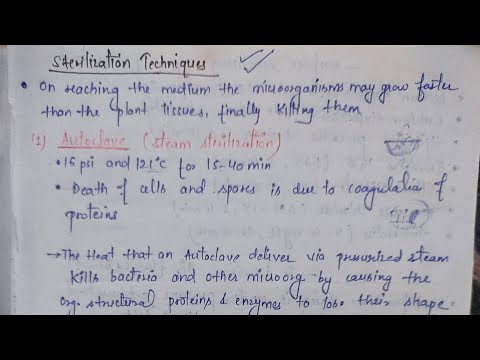 Sterilization Techniques
• On reaching the medium the microorganisms may grow faster
than the plant tissues, finally killing them
(1) Autoclave (steam sterilization)
• 15 psi and 121°c for 15-40 min
• Death of cells and spores is due to coagulatia of
proteins
→ The Heat that an Autoclave deliver via pressurized steam
kills bacteria and other microorg by causing the
org. structural proteins & enzymes to lose their shape